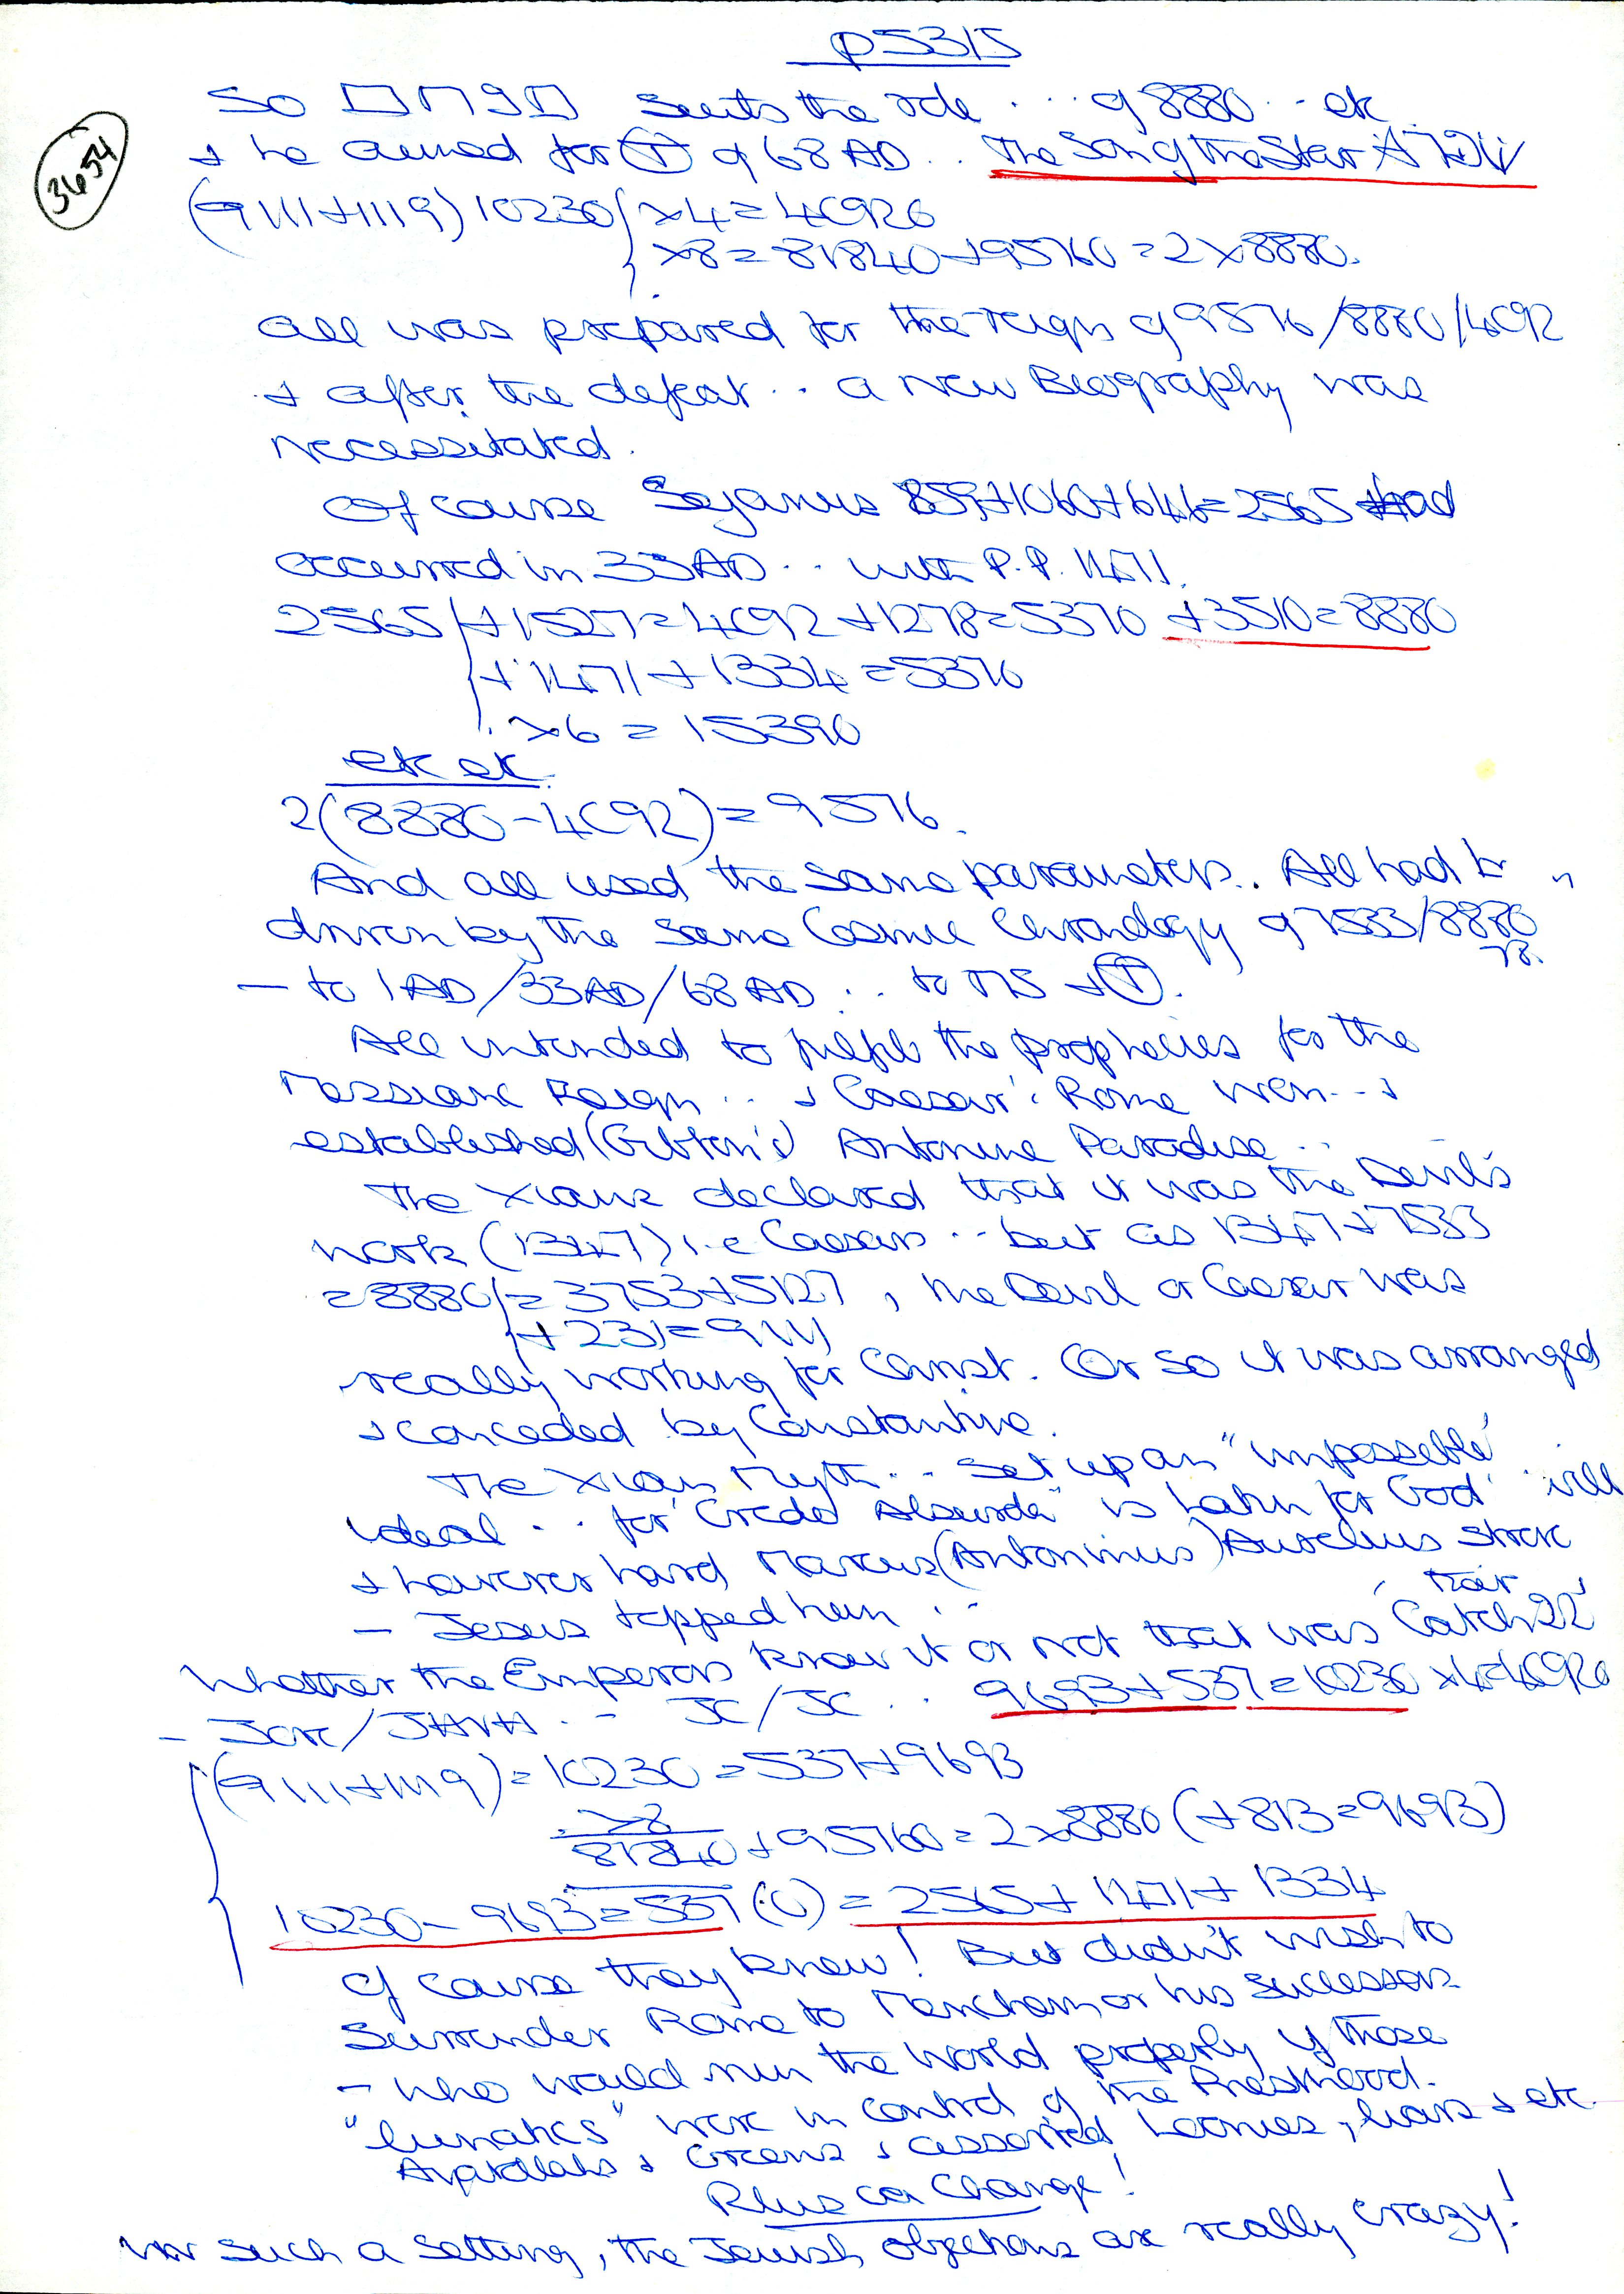 p5315
3654
So מנחם Suits the role ... of 8880 .. etc
+ he aimed for Ⓣ of 68 AD .. The Son of the Star
(9111+1119) 10230 / x4 = 40920
x8 = 81840 + 95760 = 2x8880.
All was prepared for the reign of 9576/8880/4092
+ after the defeat .. a new Biography was
necessitated.
Of course Sejanus 859+1060+646=2565 had
occurred in 33AD .. with P.P. 1471.
2565 / +1527=4092+1278=5370 +3510=8880
+1471+1334=5370
x6 = 15390
etc etc.
2(8880-4092)=9576.
And all used the same parameters.. All had to
driven by the same Cosmic Chronology of 7533/8880
- to 1AD/33AD/68AD .. to MS + Ⓣ.
All intended to fulfil the prophecies for the
Messianic Reign .. + Caesar's Rome won .. +
established (Gibbon's) Antonine Paradise ..
The Xians declared that it was the Devil's
work (1347) i.e Caesars .. but as 1347+7533
=8880 / = 3753+5127, the Devil or Caesar was
+231=9111
really working for Christ. Or so it was arranged
+ conceded by Constantine.
The Xian Myth .. set up an "impossible"
ideal .. for "Credo Absurda" is taken for God's will
+ however hard Marcus (Antoninus) Aurelius strove
- Jesus topped him ..
Whether the Emperors knew it or not that was their 'Catch 22'
- / JHVH .. - JC/JC .. 9693+537=10230 x4=40920
(9111+1119)=10230=537+9693
x8
81840+95760=2x8880 (+813=9693)
10230-9693=537(0)=2565+1471+1334
Of course they knew! But didn't wish to
surrender Rome to Menahem or his successors
- who would run the world properly if those
"lunatics" were in control of the Priesthood.
+ Greens + assorted Loonies, liars + etc.
Plus ca Change!
In such a setting, the Jewish objections are really crazy!